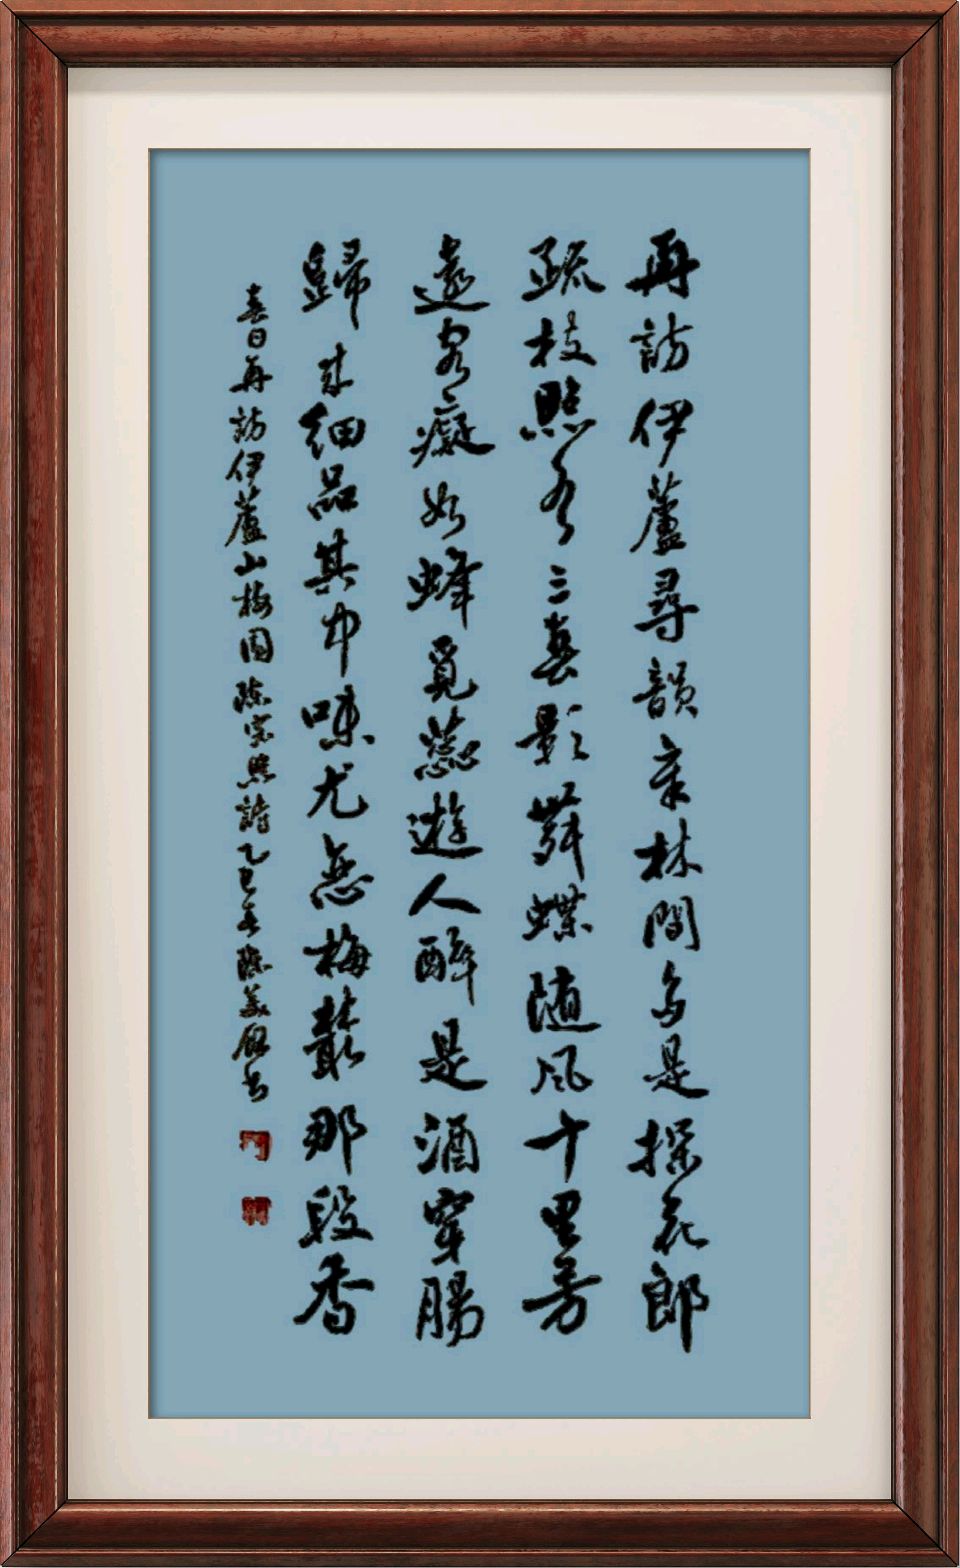 再訪伊蘆尋韻章林間多是探花郎
疏枝照水三春影舞蝶随風十里芳
遠客癡如蜂覓蕊遊人醉是酒穿腸
歸來細品其中味尤恋梅叢那段香
春日再訪伊蘆山梅園陳宗照詩乙巳春陳美書